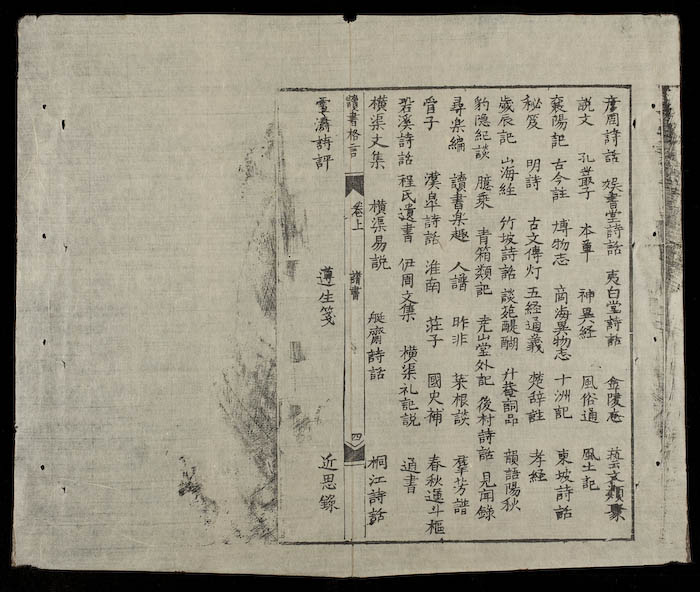 彦周詩話 娯書堂詩話 夷白堂詩話 金陵志 藝文類聚
説文 孔叢子 本草 神異経 風俗通 風土記
襄陽記 古今註 博物志 啇海異物志 十洲記 東坡詩話
秘笈 明詩 古文傳灯 五経通義 楚辞註 孝経
歲辰記 山海経 竹坡詩話 談苑醍醐 升菴詞品 韻語陽秋
豹隠紀談 臆乘 青箱類記 尭山堂外記 後村詩話 見聞録
尋楽編 讀書楽趣 人譜 昨非 菜根談 羣芳譜
管子 漢皐詩話 淮南 莊子 國史補 春秋運斗樞
碧溪詩話 程氏遺書 伊周文集 橫渠礼記説 通書
橫渠文集 橫渠易説 艇齋詩話 桐江詩話
讀書格言 卷上 諸書 四
雪濤詩評 遵生箋 近思錄